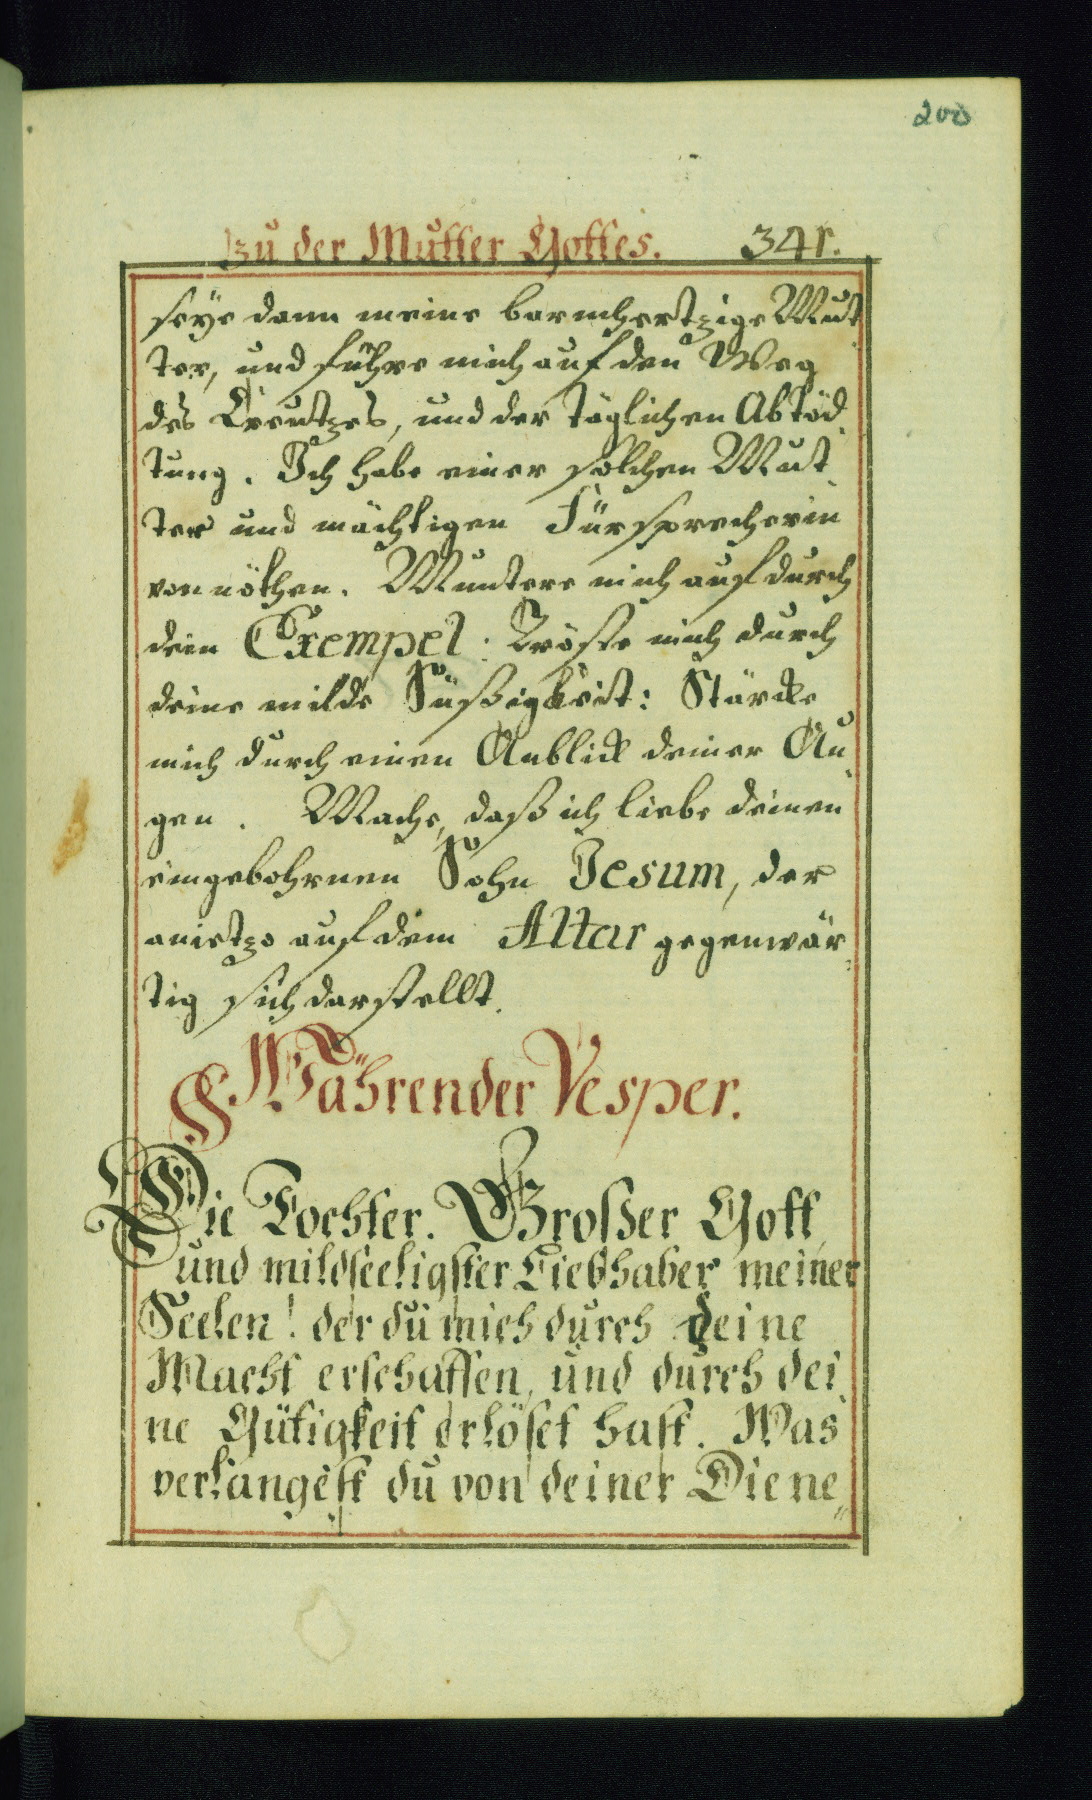 200
zu der Mutter Gottes. 341.
seÿe dann meine barmhertzige Mut
ter, und führe mich auf den Weeg
des Creutzes, und der täglichen Abtöd
tung. Ich habe einer solchen Mut
ter und mächtigen Fürsprecherin
vonnöthen. Muntere mich auf durch
dein Exempel: Tröste mich durch
deine milde Süßigkeit: Stärcke
mich durch einen Anblick deiner Au
gen. Mache, daß ich liebe deinen
eingebohrnen Sohn Jesum, der
anietzo auf dem Altar gegenwär
tig sich darstellt.
Währender Vesper.
Die Tochter. Großer Gott,
und mildseeligster Liebhaber meiner
Seelen! der du mich durch deine
Macht erschaffen, und durch dei
ne Gütigkeit erlöset hast. Was
verlangest du von deiner Diene„